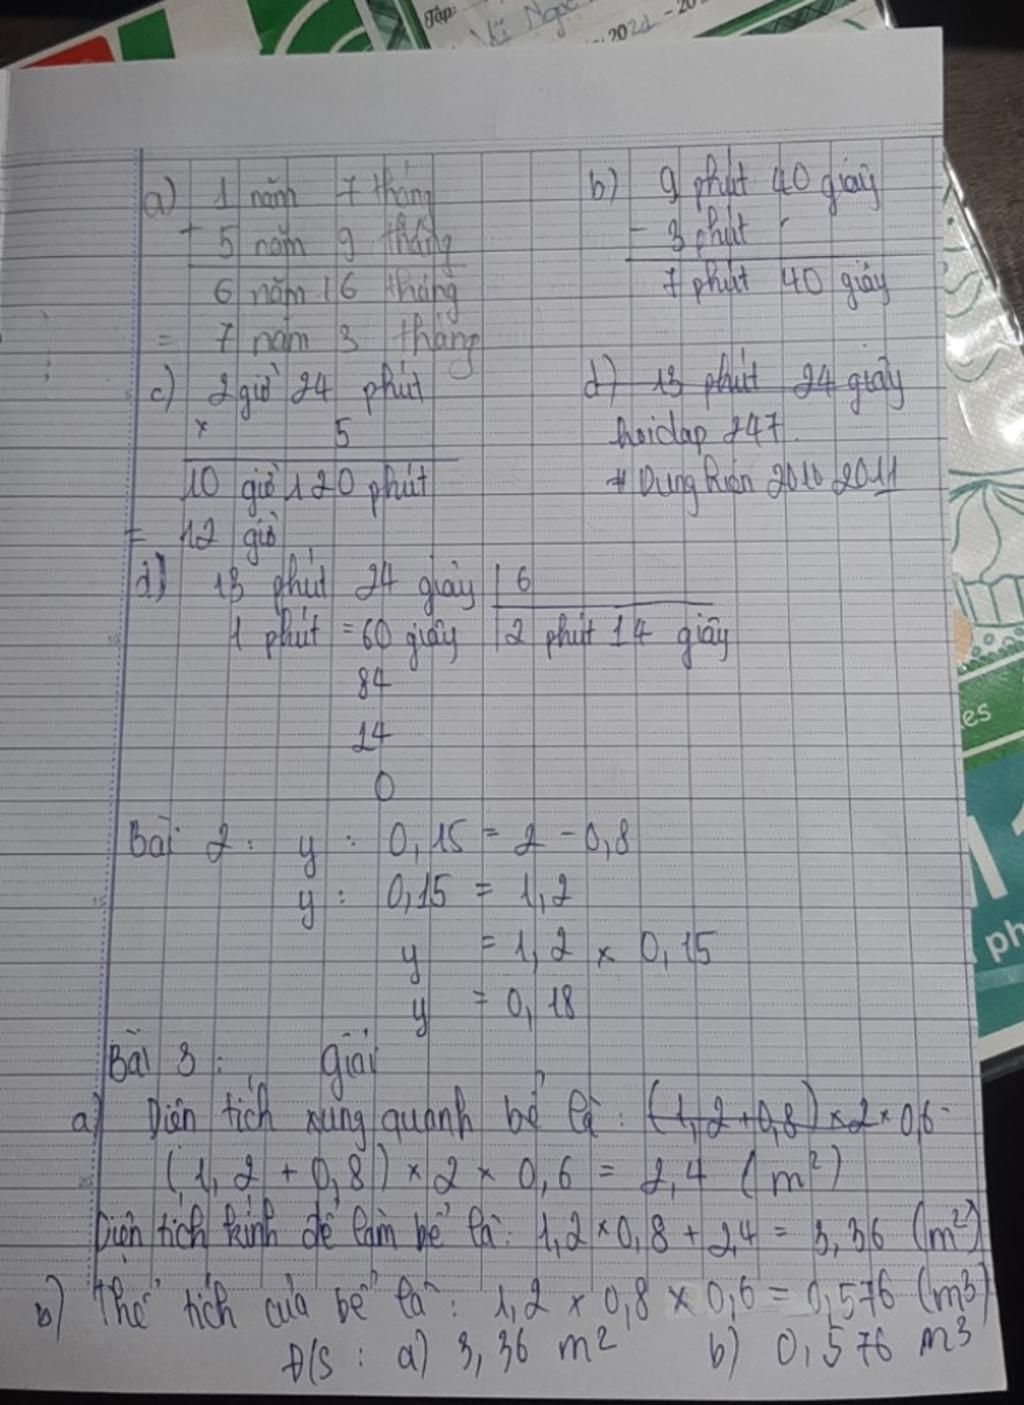 Tập:
Vũ Ngọc
2021 - 20
a) 1 năm 7 tháng
+ 5 năm 9 tháng
6 năm 16 tháng
= 7 năm 3 tháng
b) 9 phút 40 giây
- 3 phút
7 phút 40 giây
c) 2 giờ 24 phút
× 5
10 giờ 120 phút
= 12 giờ
d) 13 phút 24 giây
hoidap 247.
# Dunghien 2010 2011
d) 13 phút 24 giây | 6
1 phút = 60 giây | 2 phút 14 giây
84
24
0
Bài 2: y : 0,15 = 2 - 0,8
y : 0,15 = 1,2
y = 1,2 × 0,15
y = 0,18
Bài 3: Giải
a) Diện tích xung quanh bể là: (1,2 + 0,8) × 2 × 0,6
(1,2 + 0,8) × 2 × 0,6 = 2,4 (m²)
Diện tích kính để làm bể là: 1,2 × 0,8 + 2,4 = 3,36 (m²)
b) Thể tích của bể là: 1,2 × 0,8 × 0,6 = 0,576 (m3)
Đ/S: a) 3,36 m2 b) 0,576 m3
es
ph